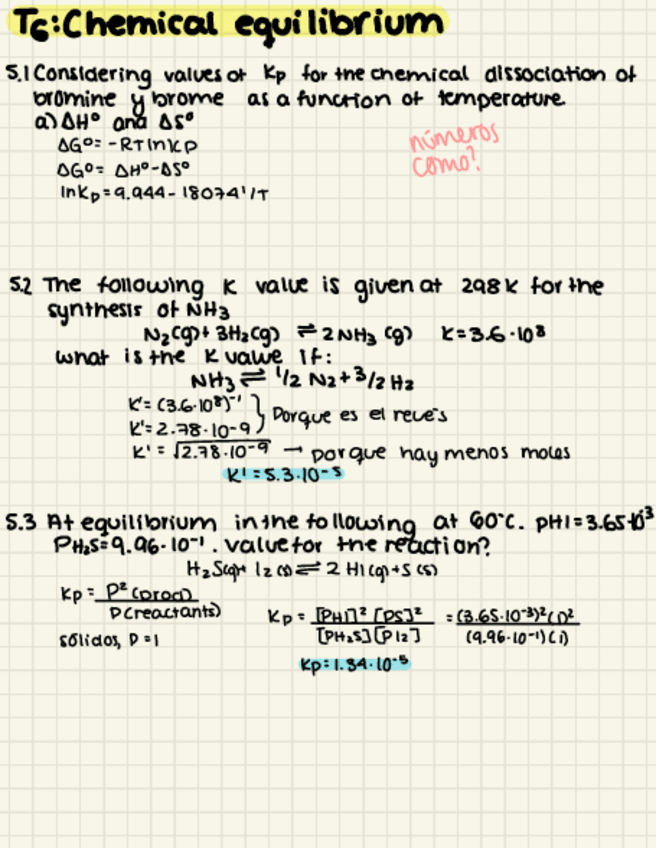 T6: Chemical equilibrium
5.1 Considering values of Kp for the chemical dissociation of
bromine y brome as a function of temperature
a) ΔH° and ΔS°
ΔG° = -RT ln Kp
ΔG° = ΔH° - ΔS°
ln Kp = 9.944 - 18074'/T
números
como?
5.2 The following K value is given at 298 K for the
synthesis of NH3
N2(g) + 3H2(g) ⇌ 2NH3 (g) K = 3.6·10⁸
what is the K value if:
NH3 ⇌ 1/2 N2 + 3/2 H2
K' = (3.6·10⁸)⁻¹
K' = 2.78·10-9 } Porque es el revés
K' = √2.78·10⁻⁹ → porque hay menos moles
K' = 5.3·10⁻⁵
5.3 At equilibrium in the following at 60°C. pHI = 3.65·10⁻³
PH2S = 9.96·10⁻¹. value for the reaction?
H2S(g) + I2(s) ⇌ 2 HI(g) + S(s)
Kp = P²(prod) / P(reactants)
Kp = [PHI]² [PS]² / [PH2S][PI2] = (3.65·10⁻³)²(1)² / (9.96·10⁻¹)(1)
sólidos, P = 1
Kp = 1.34·10⁻⁵